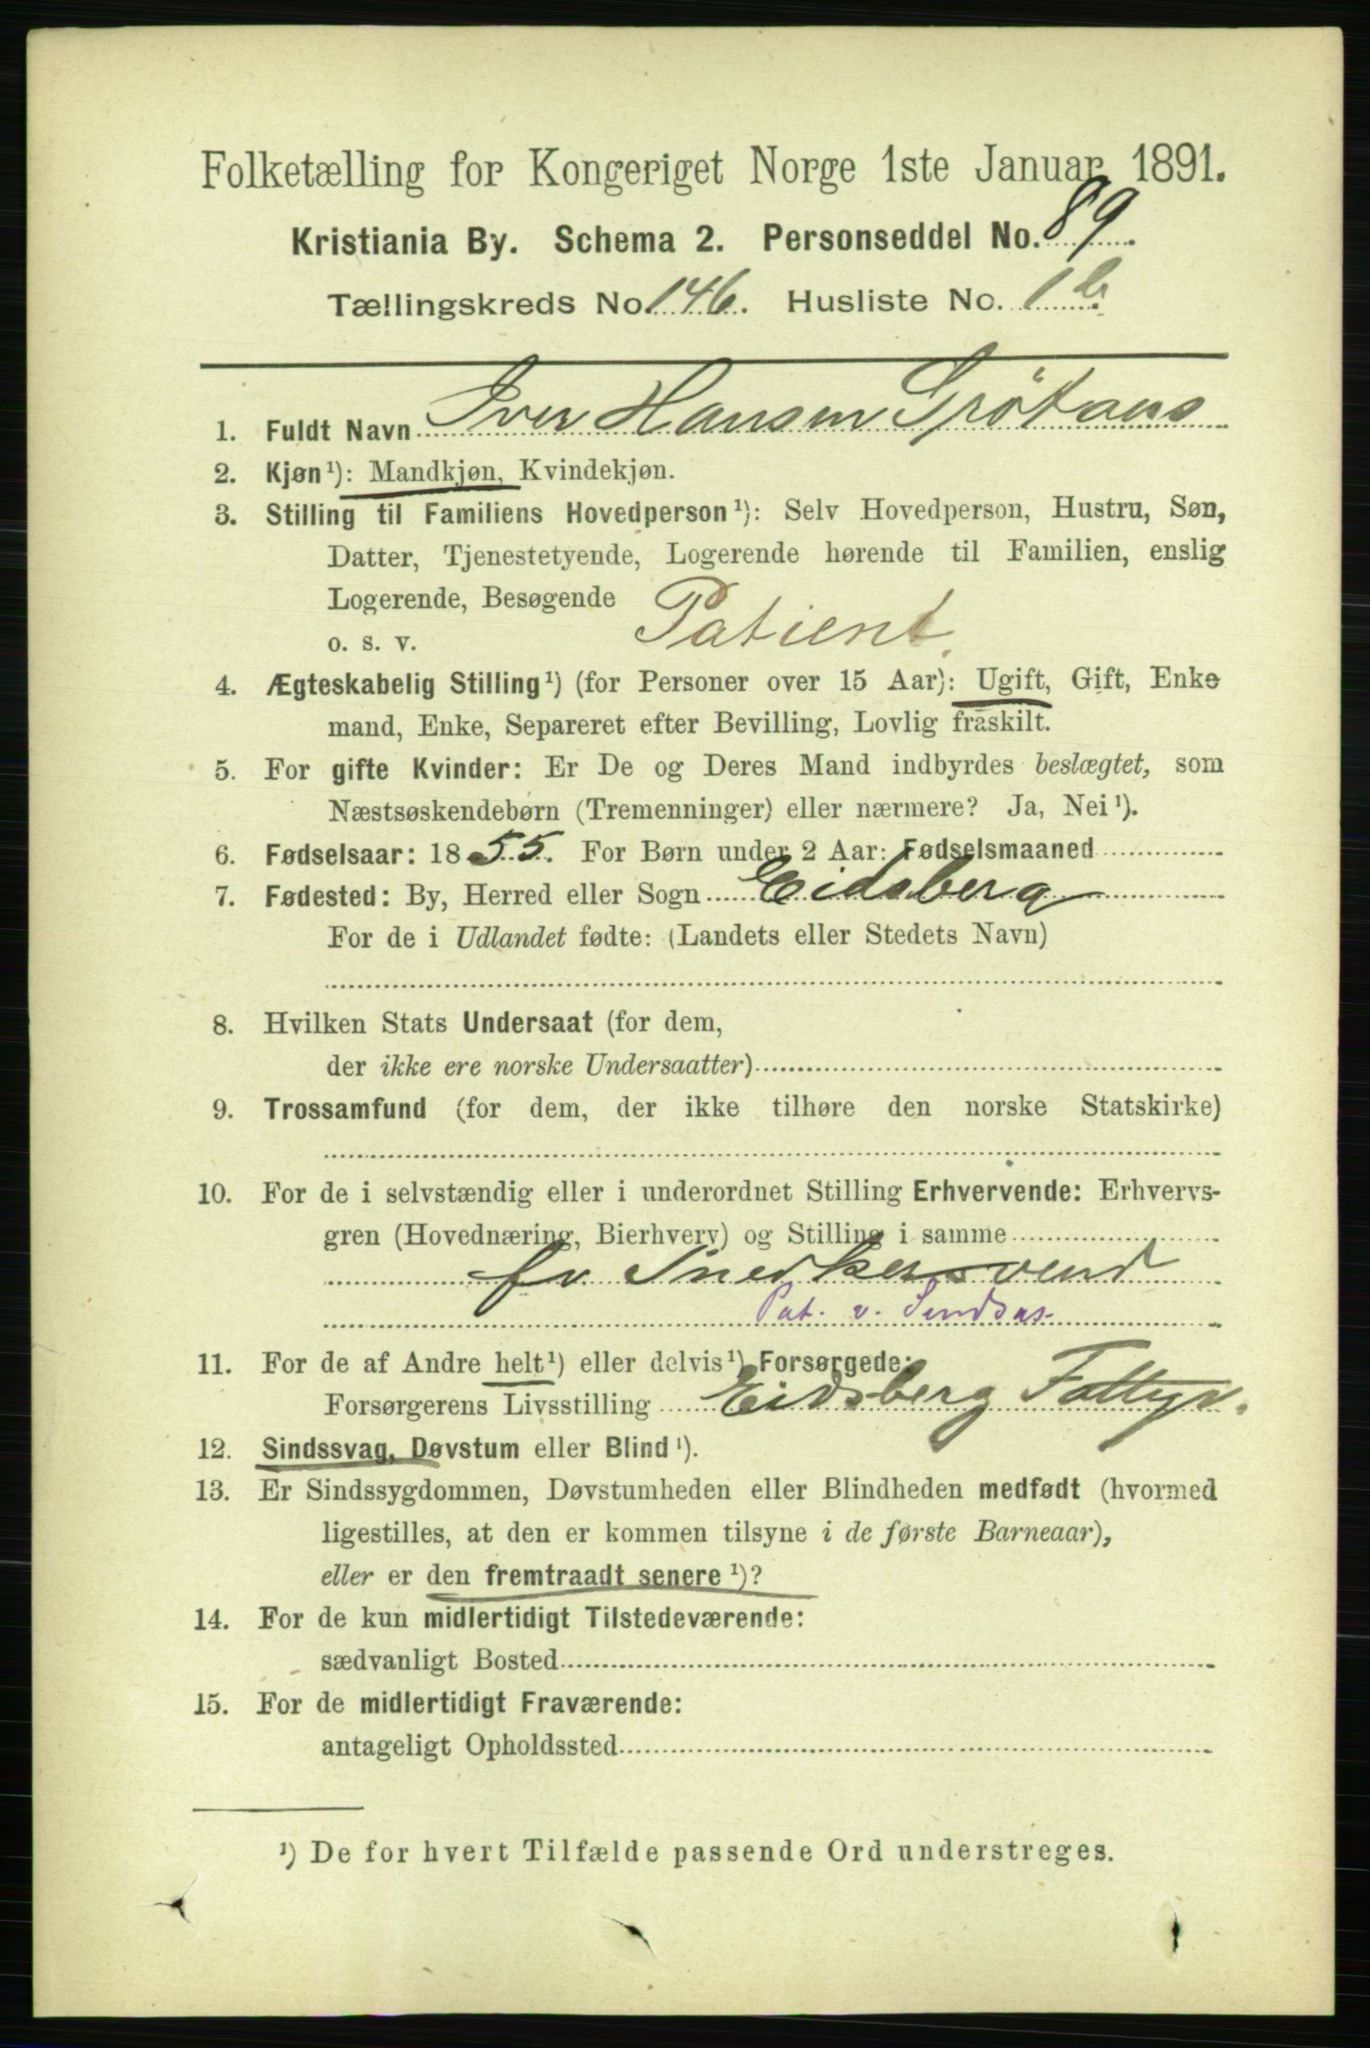 Folketælling for Kongeriget Norge 1ste Januar 1891.
Kristiania By. Schema 2. Personseddel No. 89.
Tællingskreds No. 146. Husliste No. 1 b.
1. Fuldt Navn Iver Hansen
2. Kjøn¹): Mandkjøn, Kvindekjøn.
3. Stilling til Familiens Hovedperson¹): Selv Hovedperson, Hustru, Søn,
Datter, Tjenestetyende, Logerende hørende til Familien, enslig
Logerende, Besøgende
o. s. v. Patient.
4. Ægteskabelig Stilling¹) (for Personer over 15 Aar): Ugift, Gift, Enke
mand, Enke, Separeret efter Bevilling, Lovlig fraskilt.
5. For gifte Kvinder: Er De og Deres Mand indbyrdes beslægtet, som
Næstsøskendebørn (Tremenninger) eller nærmere? Ja, Nei¹).
6. Fødselsaar: 1855. For Børn under 2 Aar: Fødselsmaaned
7. Fødested: By, Herred eller Sogn Eidsberg
For de i Udlandet fødte: (Landets eller Stedets Navn)
8. Hvilken Stats Undersaat (for dem,
der ikke ere norske Undersaatter)
9. Trossamfund (for dem, der ikke tilhøre den norske Statskirke)
10. For de i selvstændig eller i underordnet Stilling Erhvervende: Erhvervs-
gren (Hovednæring, Bierhverv) og Stilling i samme
fv. Snedkersvend
Pat. v. Sindsas.
11. For de af Andre helt¹) eller delvis¹) Forsørgede:
Forsørgerens Livsstilling Eidsberg Fattigv.
12. Sindssvag, Døvstum eller Blind¹).
13. Er Sindssygdommen, Døvstumheden eller Blindheden medfødt (hvormed
ligestilles, at den er kommen tilsyne i de første Barneaar),
eller er den fremtraadt senere¹)?
14. For de kun midlertidigt Tilstedeværende:
sædvanligt Bosted
15. For de midlertidigt Fraværende:
antageligt Opholdssted
¹) De for hvert Tilfælde passende Ord understreges.